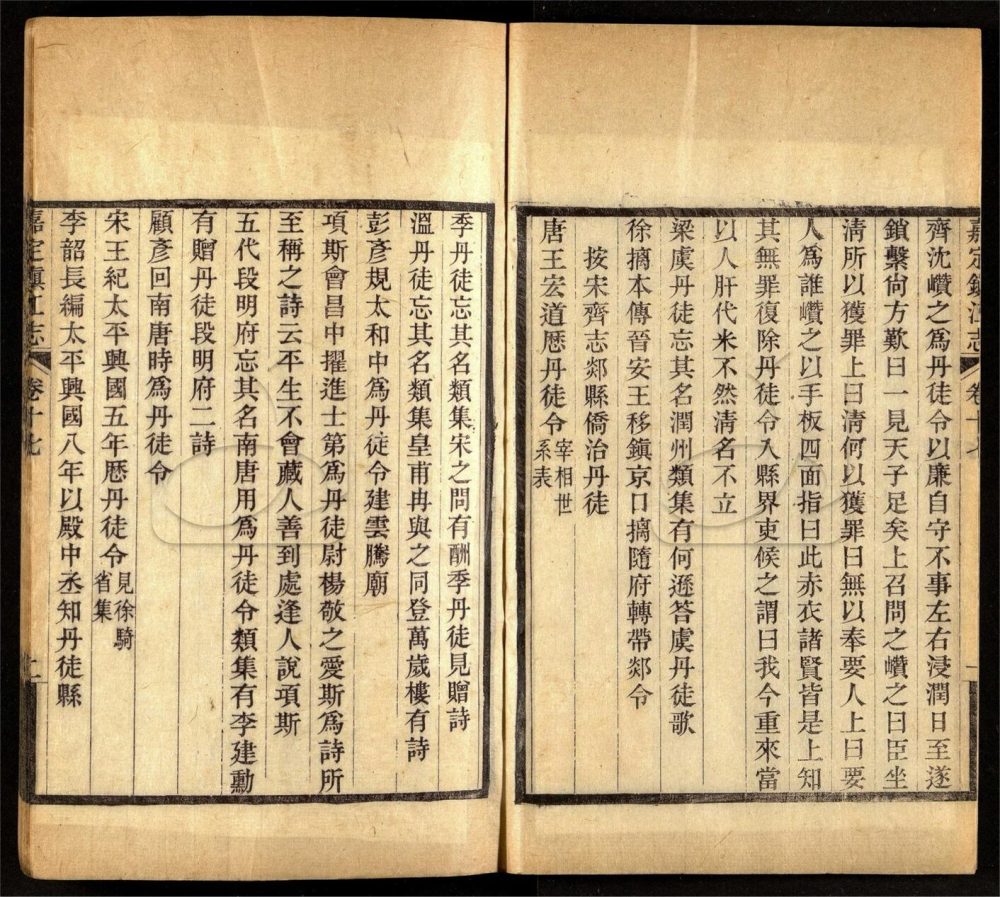 嘉定鎮江志 卷十七
齊沈巑之爲丹徒令以廉自守不事左右浸潤日至遂
鎖繫尙方歎曰一見天子足矣上召問之巑之曰臣坐
淸所以獲罪上曰淸何以獲罪曰無以奉要人上曰要
人爲誰巑之以手板四面指曰此赤衣諸賢皆是上知
其無罪復除丹徒令入縣界吏候之謂曰我今重來當
以人肝代米不然淸名不立
梁虞丹徒忘其名潤州類集有何遜答虞丹徒歌
徐摛本傳晉安王移鎭京口摛隨府轉帶郯令
按宋齊志郯縣僑治丹徒
唐王宏道歷丹徒令宰相世系表
季丹徒忘其名類集宋之問有酬季丹徒見贈詩
溫丹徒忘其名類集皇甫冉與之同登萬歲樓有詩
彭彥規太和中爲丹徒令建雲騰廟
項斯會昌中擢進士第爲丹徒尉楊敬之愛斯爲詩所
至稱之詩云平生不會藏人善到處逢人說項斯
五代段明府忘其名南唐用爲丹徒令類集有李建勳
有贈丹徒段明府二詩
顧彥回南唐時爲丹徒令
宋王紀太平興國五年歷丹徒令見徐騎省集
李韶長編太平興國八年以殿中丞知丹徒縣
嘉定鎮江志 卷十七